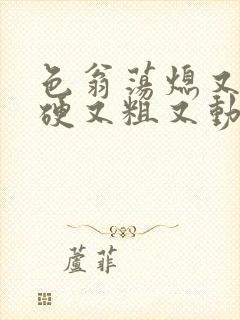 色翁荡熄又
硬又粗又動
蘆菲